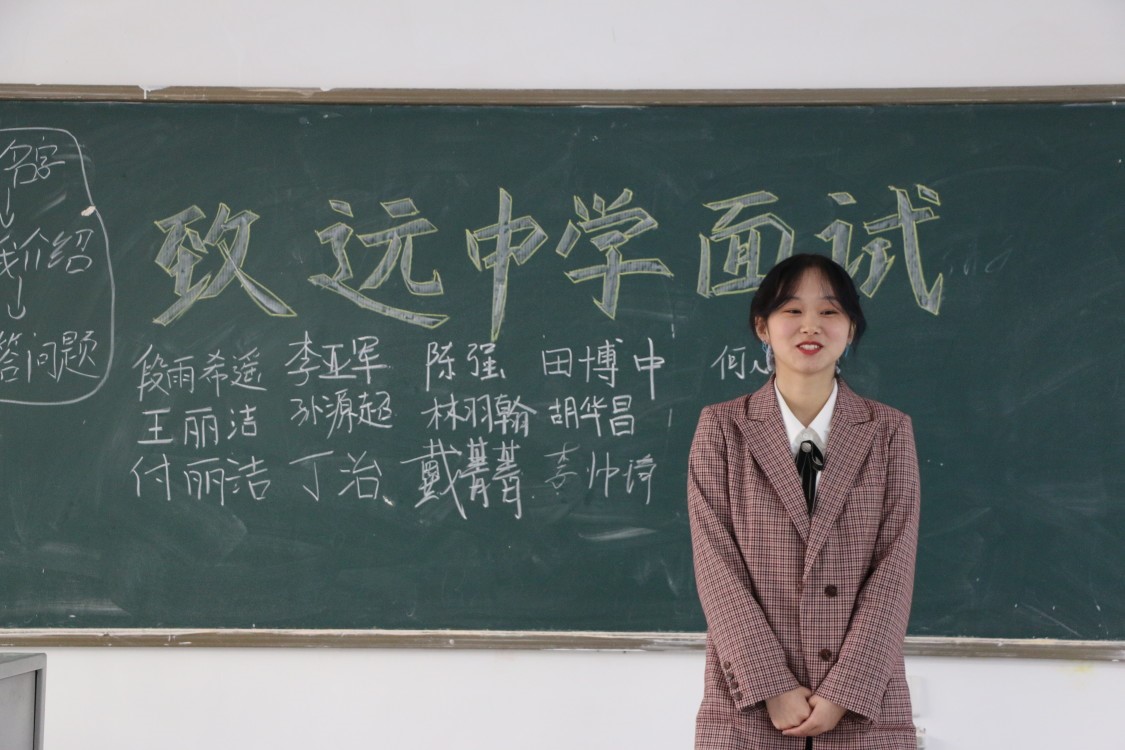 名字
我介绍
答问题
致远中学面试
段雨希遥 李亚军 陈强 田博中 何
王丽洁 孙源超 林羽翰 胡华昌
付丽洁 丁治 戴菁菁 李帅